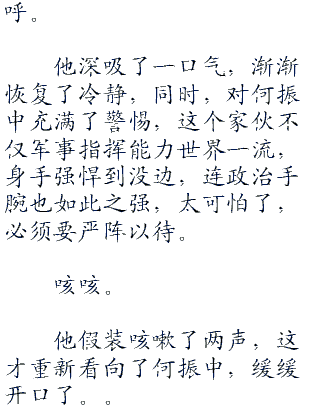 呼。
他深吸了一口气，渐渐
恢复了冷静，同时，对何振
中充满了警惕，这个家伙不
仅军事指挥能力世界一流，
身手强悍到没边，连政治手
腕也如此之强，太可怕了，
必须要严阵以待。
咳咳。
他假装咳嗽了两声，这
才重新看向了何振中，缓缓
开口了。。